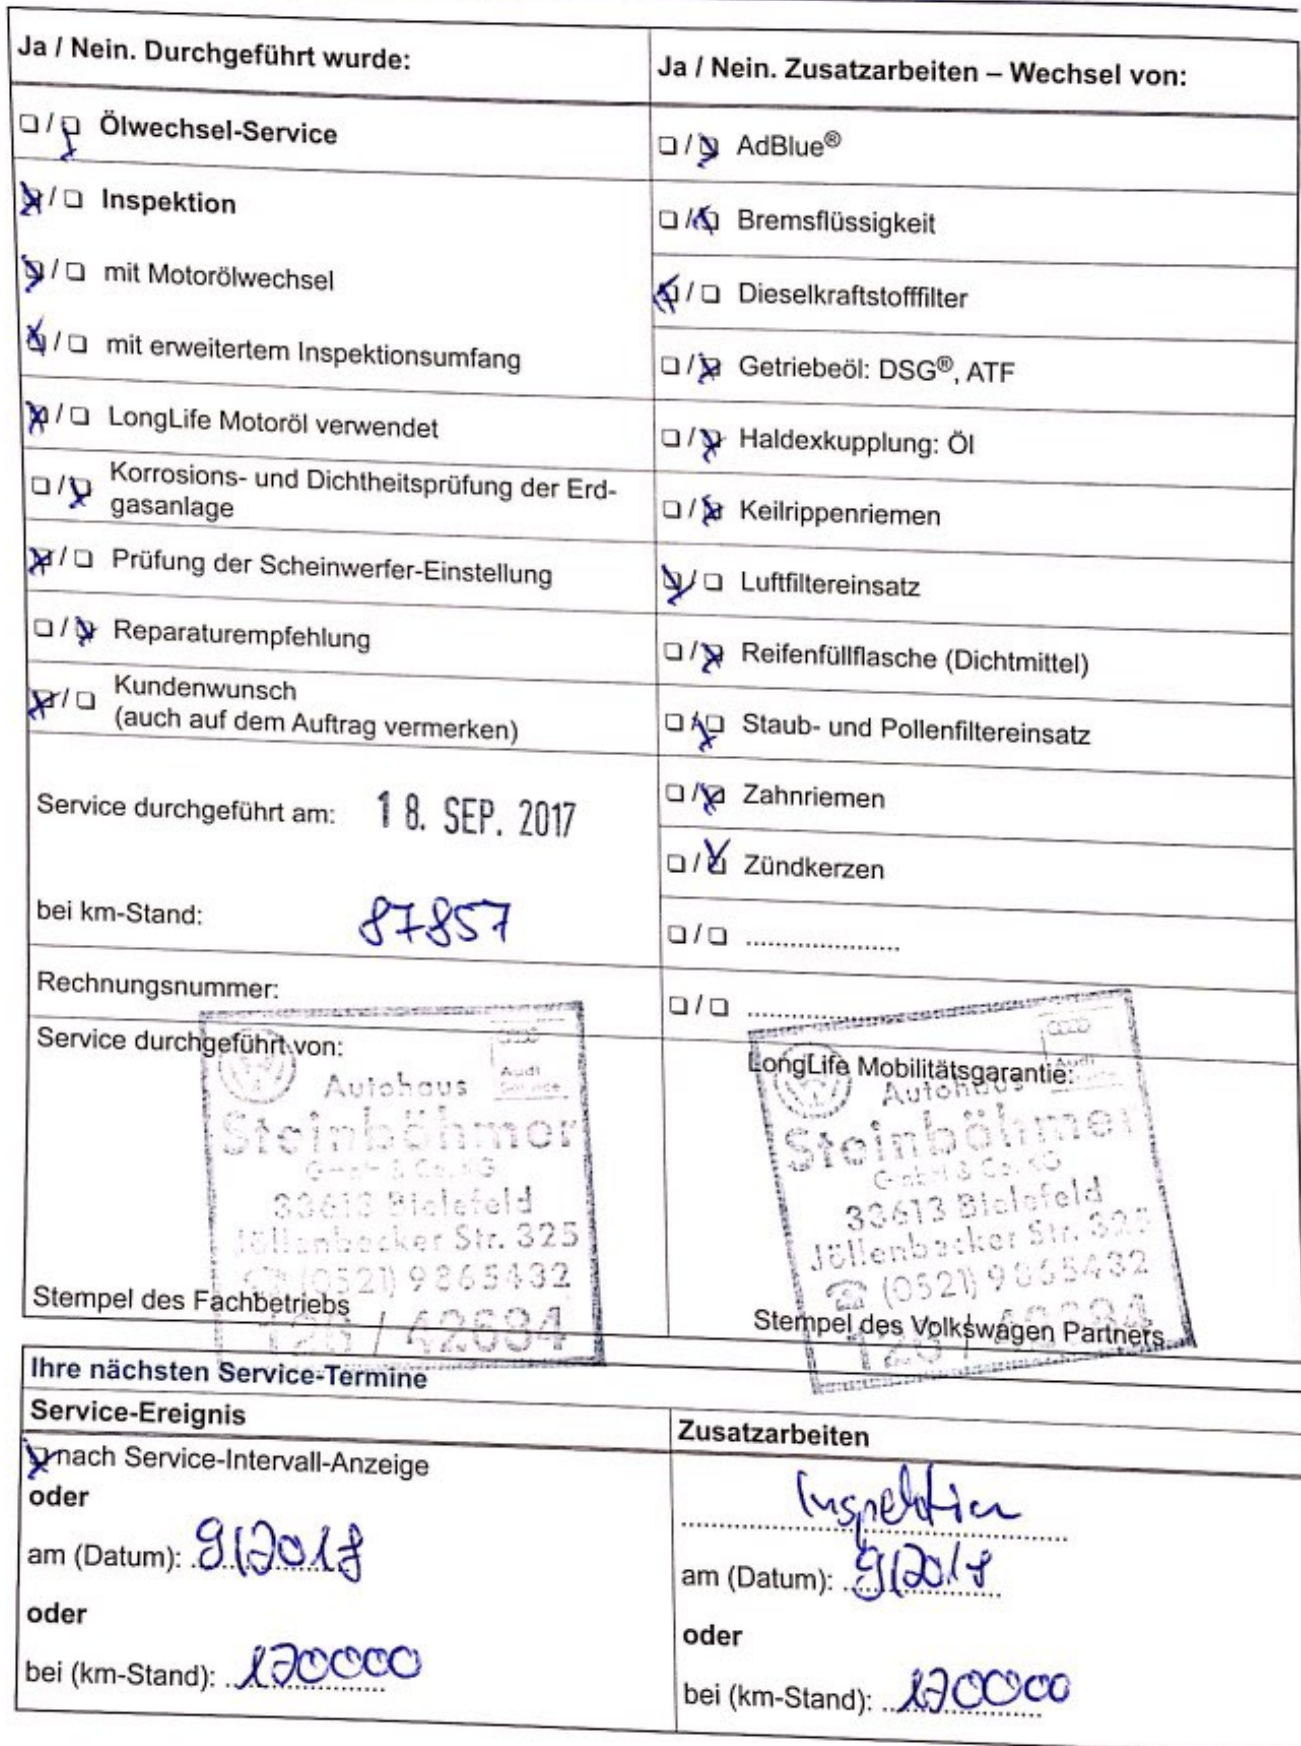 Ja / Nein. Durchgeführt wurde:
❏ / ❏ Ölwechsel-Service
❏ / ❏ Inspektion
❏ / ❏ mit Motorölwechsel
❏ / ❏ mit erweitertem Inspektionsumfang
❏ / ❏ LongLife Motoröl verwendet
❏ / ❏ Korrosions- und Dichtheitsprüfung der Erd-
gasanlage
❏ / ❏ Prüfung der Scheinwerfer-Einstellung
❏ / ❏ Reparaturempfehlung
❏ / ❏ Kundenwunsch
(auch auf dem Auftrag vermerken)
Service durchgeführt am: 18. SEP. 2017
bei km-Stand: 87857
Rechnungsnummer:
Service durchgeführt von:
Autohaus
Audi
Service
Steinböhmer
GmbH & Co. KG
33613 Bielefeld
Jöllenbecker Str. 325
☎ (0521) 9865432
126 / 42694
Stempel des Fachbetriebs
Ja / Nein. Zusatzarbeiten – Wechsel von:
❏ / ❏ AdBlue®
❏ / ❏ Bremsflüssigkeit
❏ / ❏ Dieselkraftstofffilter
❏ / ❏ Getriebeöl: DSG®, ATF
❏ / ❏ Haldexkupplung: Öl
❏ / ❏ Keilrippenriemen
❏ / ❏ Luftfiltereinsatz
❏ / ❏ Reifenfüllflasche (Dichtmittel)
❏ / ❏ Staub- und Pollenfiltereinsatz
❏ / ❏ Zahnriemen
❏ / ❏ Zündkerzen
❏ / ❏ ......................
❏ / ❏ ......................
LongLife Mobilitätsgarantie:
Autohaus
Audi
Steinböhmer
GmbH & Co. KG
33613 Bielefeld
Jöllenbecker Str. 325
☎ (0521) 9865432
126 / 42694
Stempel des Volkswagen Partners
Ihre nächsten Service-Termine
Service-Ereignis
❏ nach Service-Intervall-Anzeige
oder
am (Datum): 9/2018
oder
bei (km-Stand): 120000
Zusatzarbeiten
Inspektion
am (Datum): 9/2018
oder
bei (km-Stand): 120000